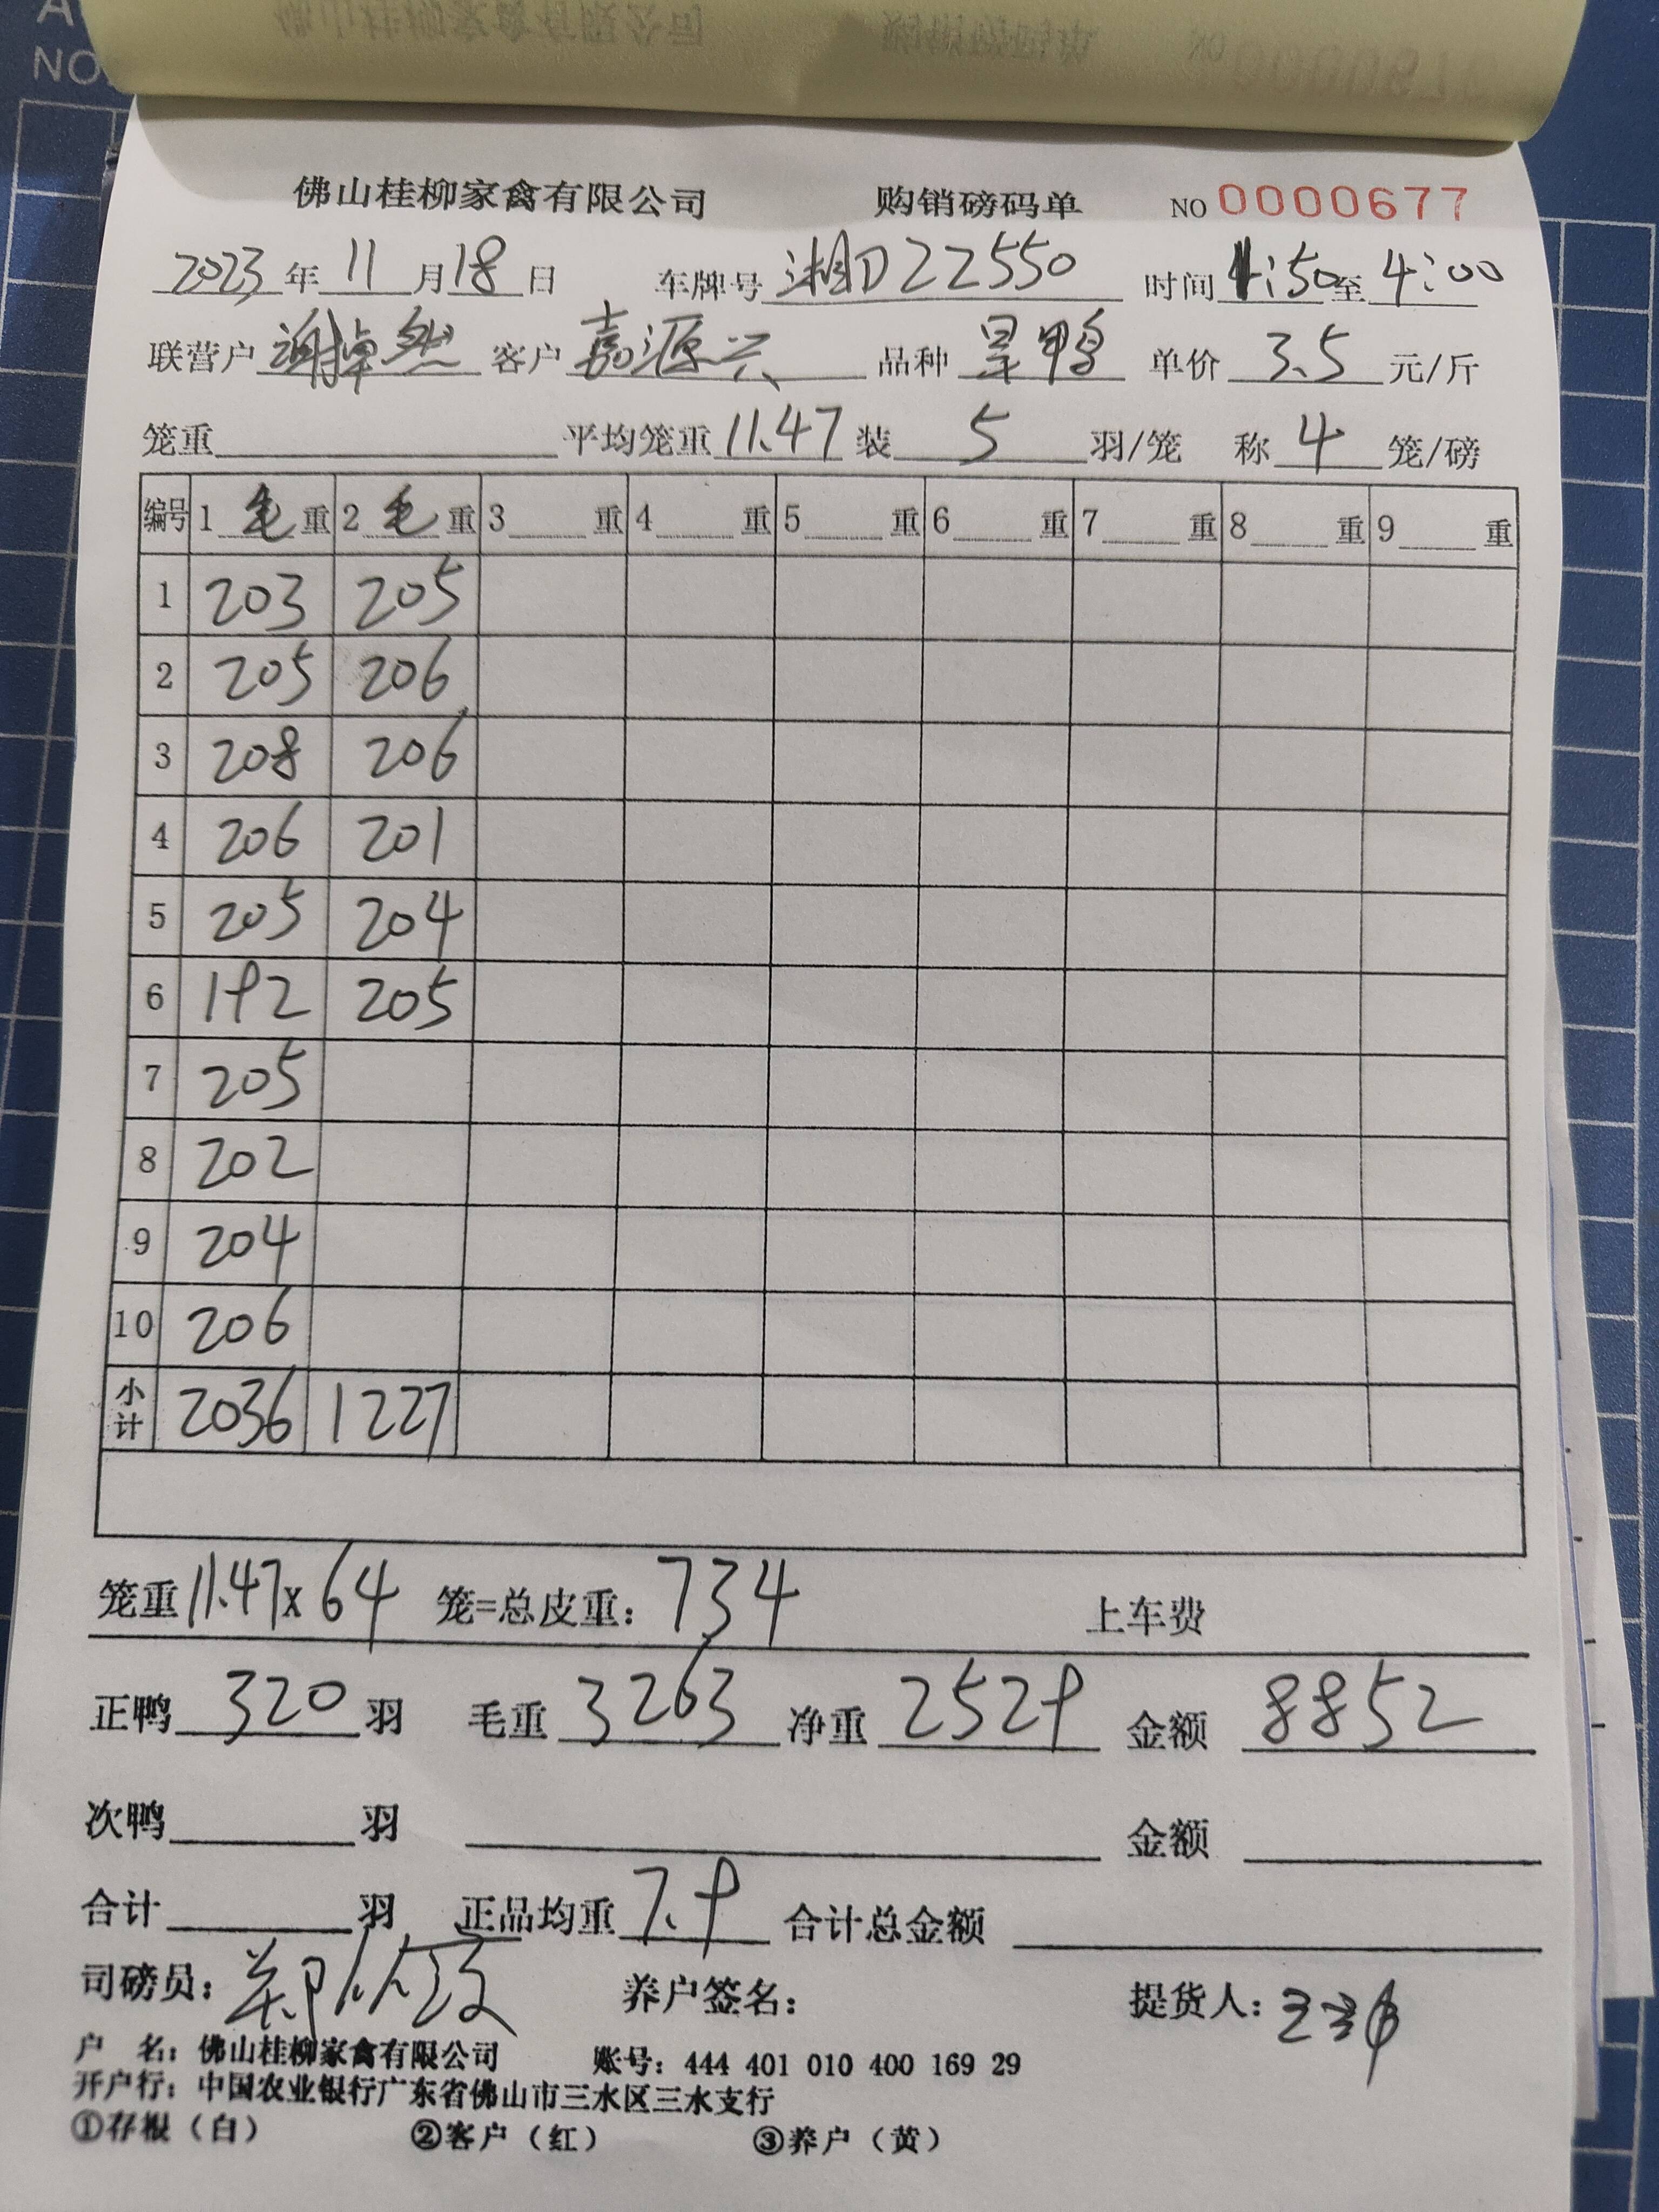 佛山桂柳家禽有限公司 购销磅码单 NO 0000677
2023年11月18日 车牌号 湘D22550 时间 1:50至4:00
联营户 谢焯然 客户 嘉源兴 品种 旱鸭 单价 3.5 元/斤
笼重 平均笼重 11.47 装 5 羽/笼 称 4 笼/磅
编号 1 毛重 2 毛重 3 重 4 重 5 重 6 重 7 重 8 重 9 重
1 203 205
2 205 206
3 208 206
4 206 201
5 205 204
6 192 205
7 205
8 202
9 204
10 206
小计 2036 1227
笼重 11.47 x 64 笼=总皮重: 734 上车费
正鸭 320 羽 毛重 3263 净重 2529 金额 8852
次鸭 羽 金额
合计 羽 正品均重 7.9 合计总金额
司磅员: 养户签名: 提货人:
户 名: 佛山桂柳家禽有限公司 账号: 444 401 010 400 169 29
开户行: 中国农业银行广东省佛山市三水区三水支行
①存根（白） ②客户（红） ③养户（黄）